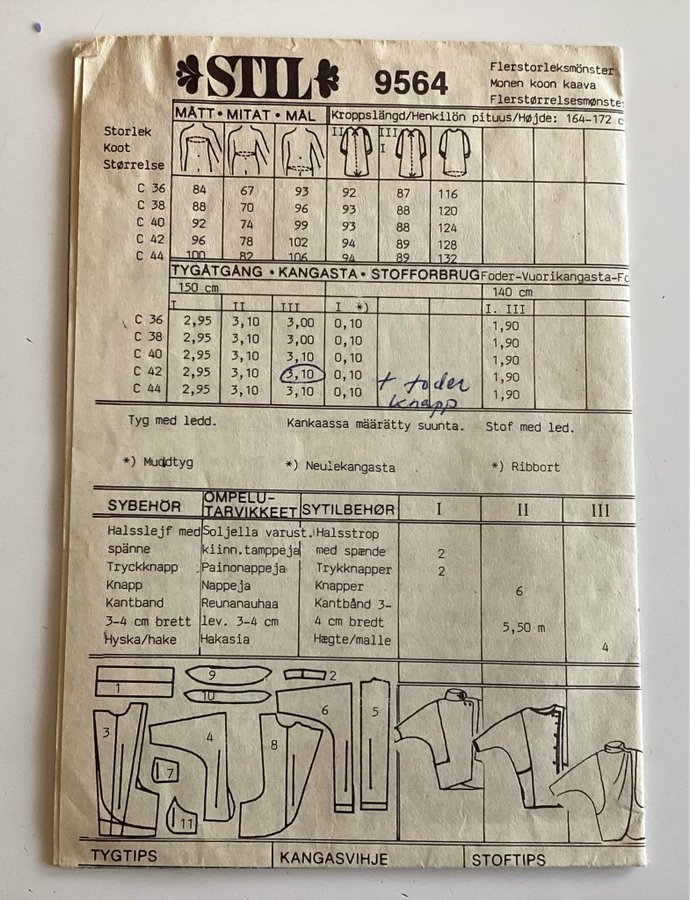 STIL 9564
Flerstorleksmönster
Monen koon kaava
Flerstørrelsesmønste
MÅTT • MITAT • MÅL Kroppslängd/Henkilön pituus/Højde: 164-172 c
Storlek II III
Koot I
Størrelse
C 36 84 67 93 92 87 116
C 38 88 70 96 93 88 120
C 40 92 74 99 93 88 124
C 42 96 78 102 94 89 128
C 44 100 82 106 94 89 132
TYGÅTGÅNG • KANGASTA • STOFFORBRUG Foder-Vuorikangasta-Fo
150 cm 140 cm
I II III I *) I. III
C 36 2,95 3,10 3,00 0,10 1,90
C 38 2,95 3,10 3,00 0,10 1,90
C 40 2,95 3,10 3,10 0,10 1,90
C 42 2,95 3,10 3,10 0,10 1,90
C 44 2,95 3,10 3,10 0,10 1,90
+ foder
knapp
Tyg med ledd. Kankaassa määrätty suunta. Stof med led.
*) Muddtyg *) Neulekangasta *) Ribbort
SYBEHÖR OMPELU-TARVIKKEET SYTILBEHØR I II III
Halsslejf med Soljella varust. Halsstrop
spänne kiinn.tamppeja med spænde 2
Tryckknapp Painonappeja Trykknapper 2
Knapp Nappeja Knapper 6
Kantband Reunanauhaa Kantbånd 3-
3-4 cm brett lev. 3-4 cm 4 cm bredt 5,50 m
Hyska/hake Hakasia Hægte/malle 4
1 9 10 2
3 4 7 11 8 6 5
TYGTIPS KANGASVIHJE STOFTIPS